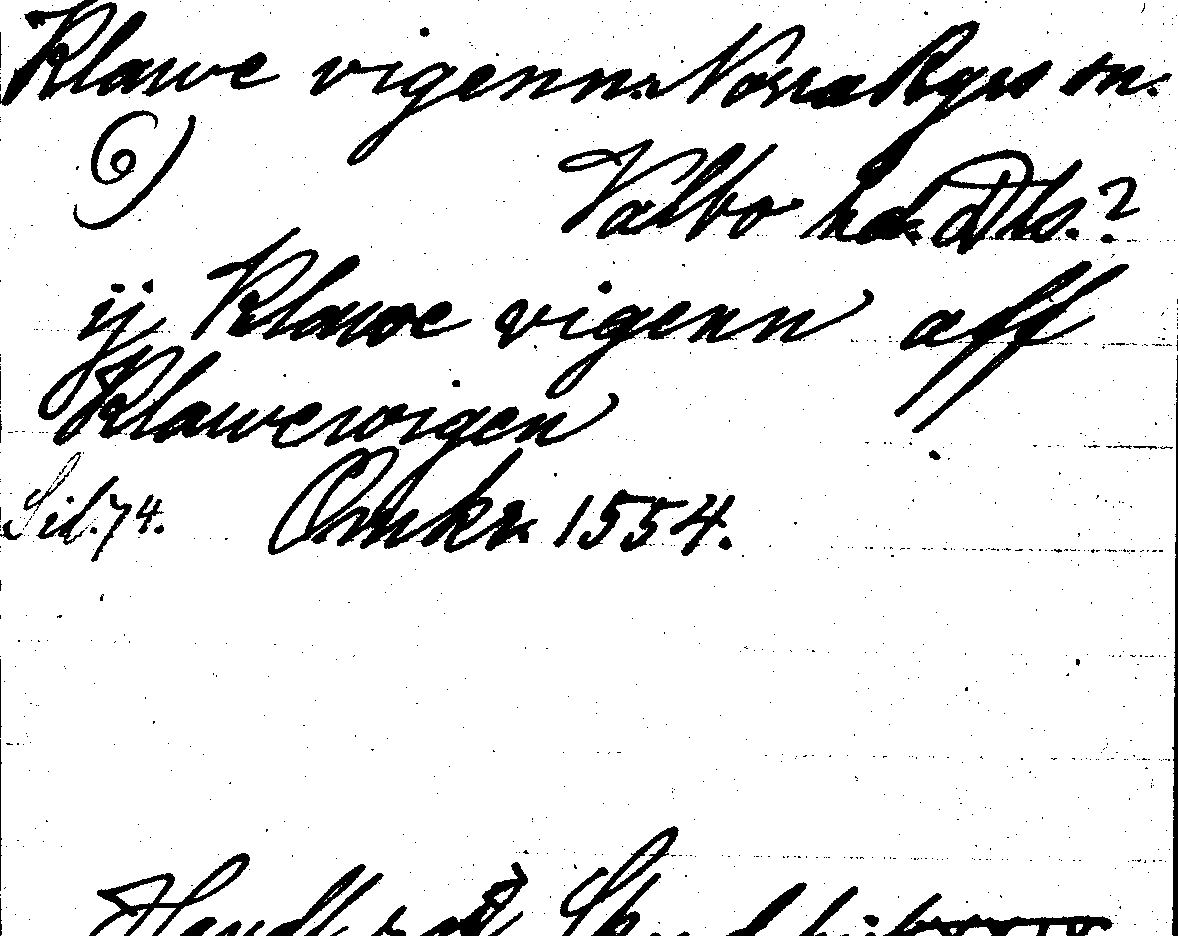 Klawe vigenn. Norra Ryrs sn.
Valbo hd. Dls.?
ij Klawe vigenn aff
Klawewigen
Sid. 74. Omkr. 1554.